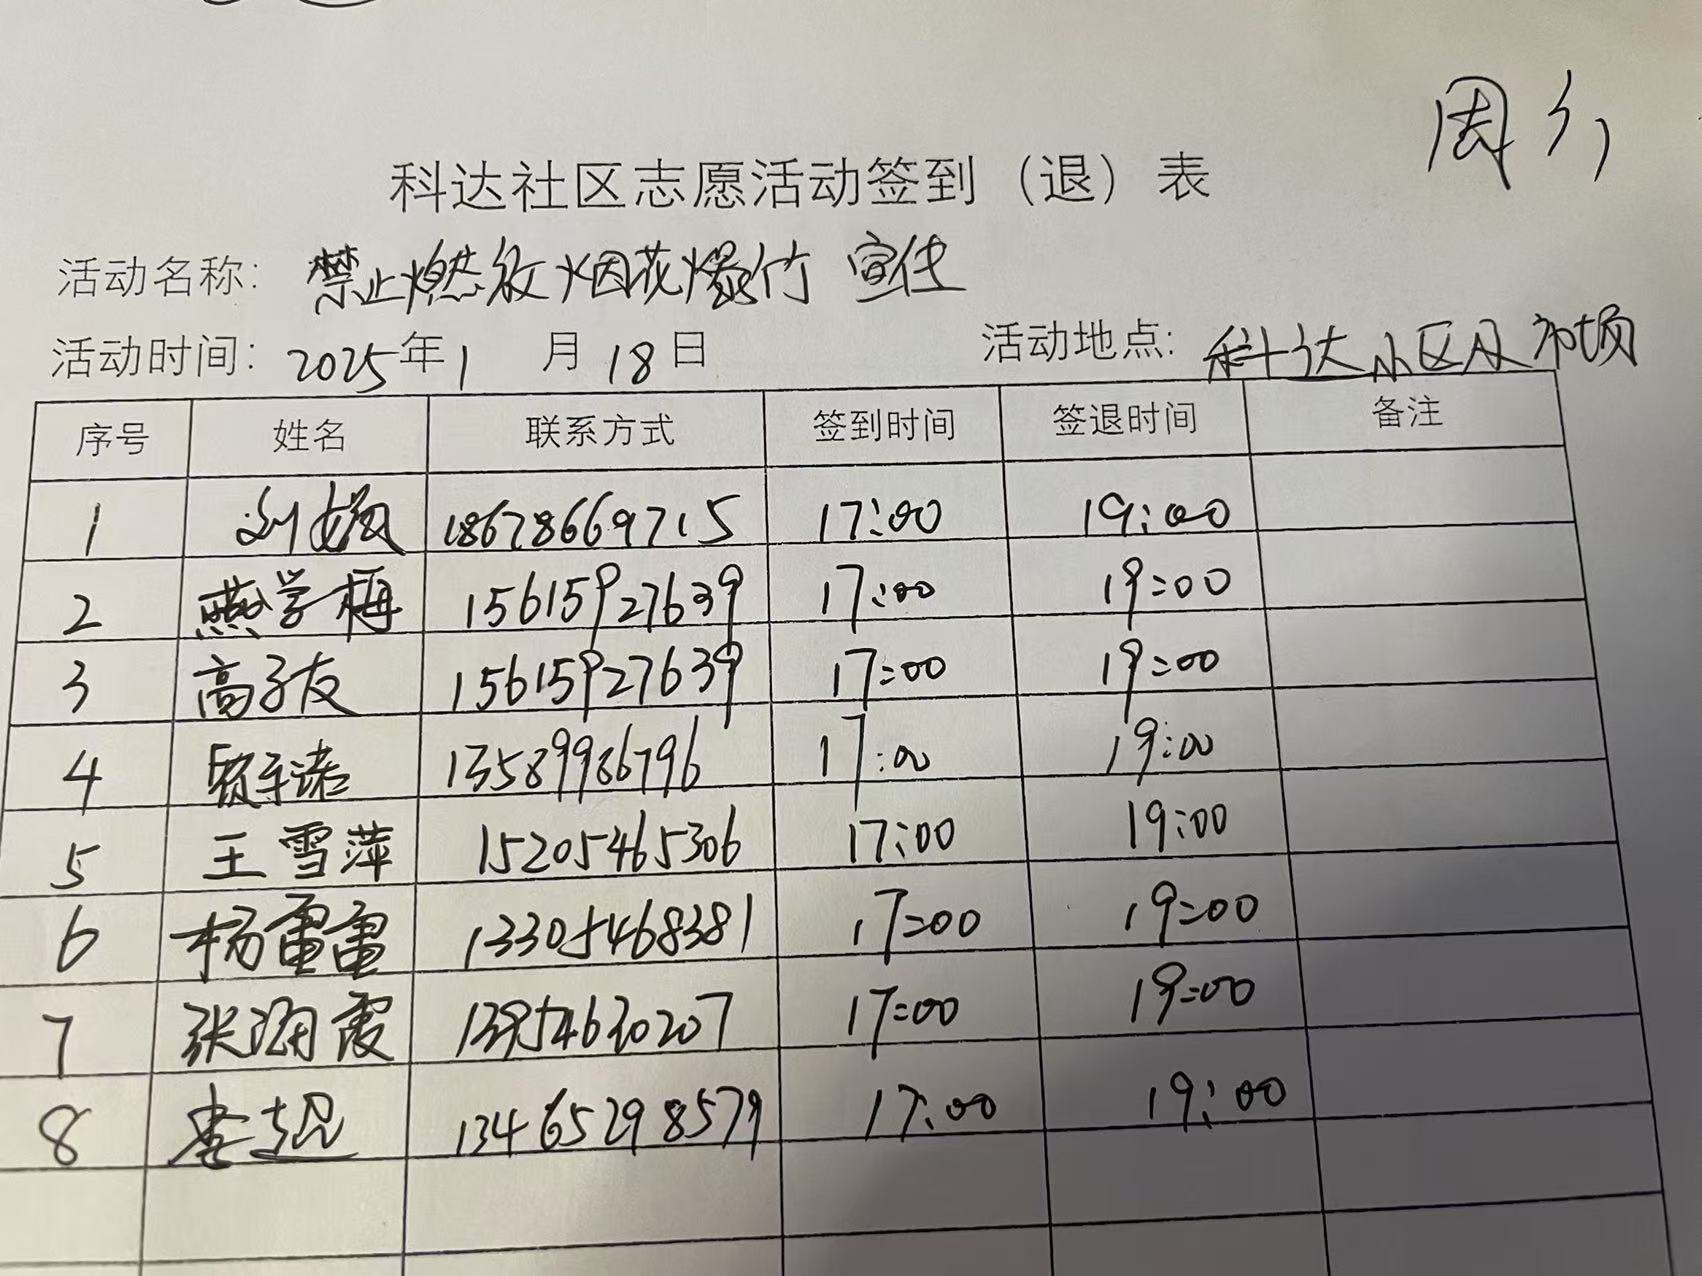 周
科达社区志愿活动签到（退）表
活动名称: 禁止燃放烟花爆竹 宣传
活动时间: 2025年1月18日 活动地点: 科达小区及
序号 姓名 联系方式 签到时间 签退时间 备注
1 刘媛 18678669715 17:00 19:00
2 燕学梅 15615927639 17:00 19:00
3 高子友 15615927639 17:00 19:00
4 13589986796 17:00 19:00
5 王雪萍 15205465306 17:00 19:00
6 杨雷雷 13305468381 17:00 19:00
7 张海霞 17:00 19:00
8 李超 13465298579 17:00 19:00